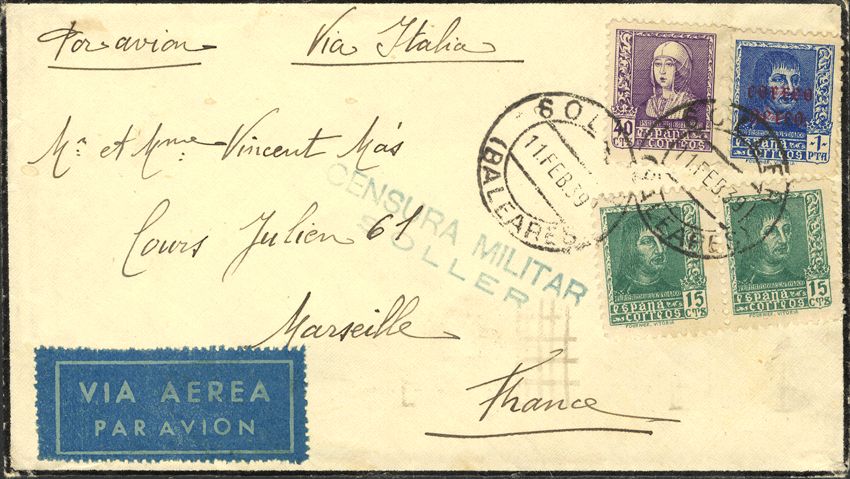 Par avion Via Italia
Mr et Mme Vincent Más
Cours Julien 61
Marseille
France
VIA AEREA
PAR AVION
CENSURA MILITAR
SOLLER
SOLLER
11.FEB.39
(BALEARES)
11.FEB.39
40
CTS
España
CORREOS
CORREO
AEREO
España
CORREOS
-1-
PTA
FERNANDO EL CATOLICO
España
CORREOS
15
CTS
FOURNIER. VITORIA
FERNANDO EL CATOLICO
España
CORREOS
15
CTS
FOURNIER. VITORIA